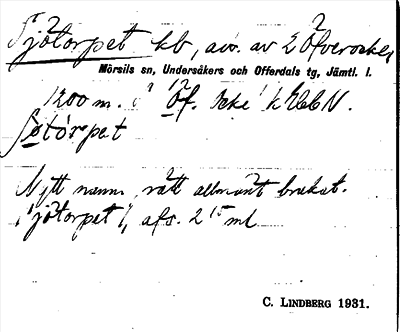 Sjötorpet kb, avs. av 2 Öfverocke
Mörsils sn, Undersåkers och Offerdals tg, Jämtl. l.
1200 m. i Öf. Ocke k
Nytt namn, rätt allmänt brukat.
"Sjötorpet", afs. 2
C. LINDBERG 1931.